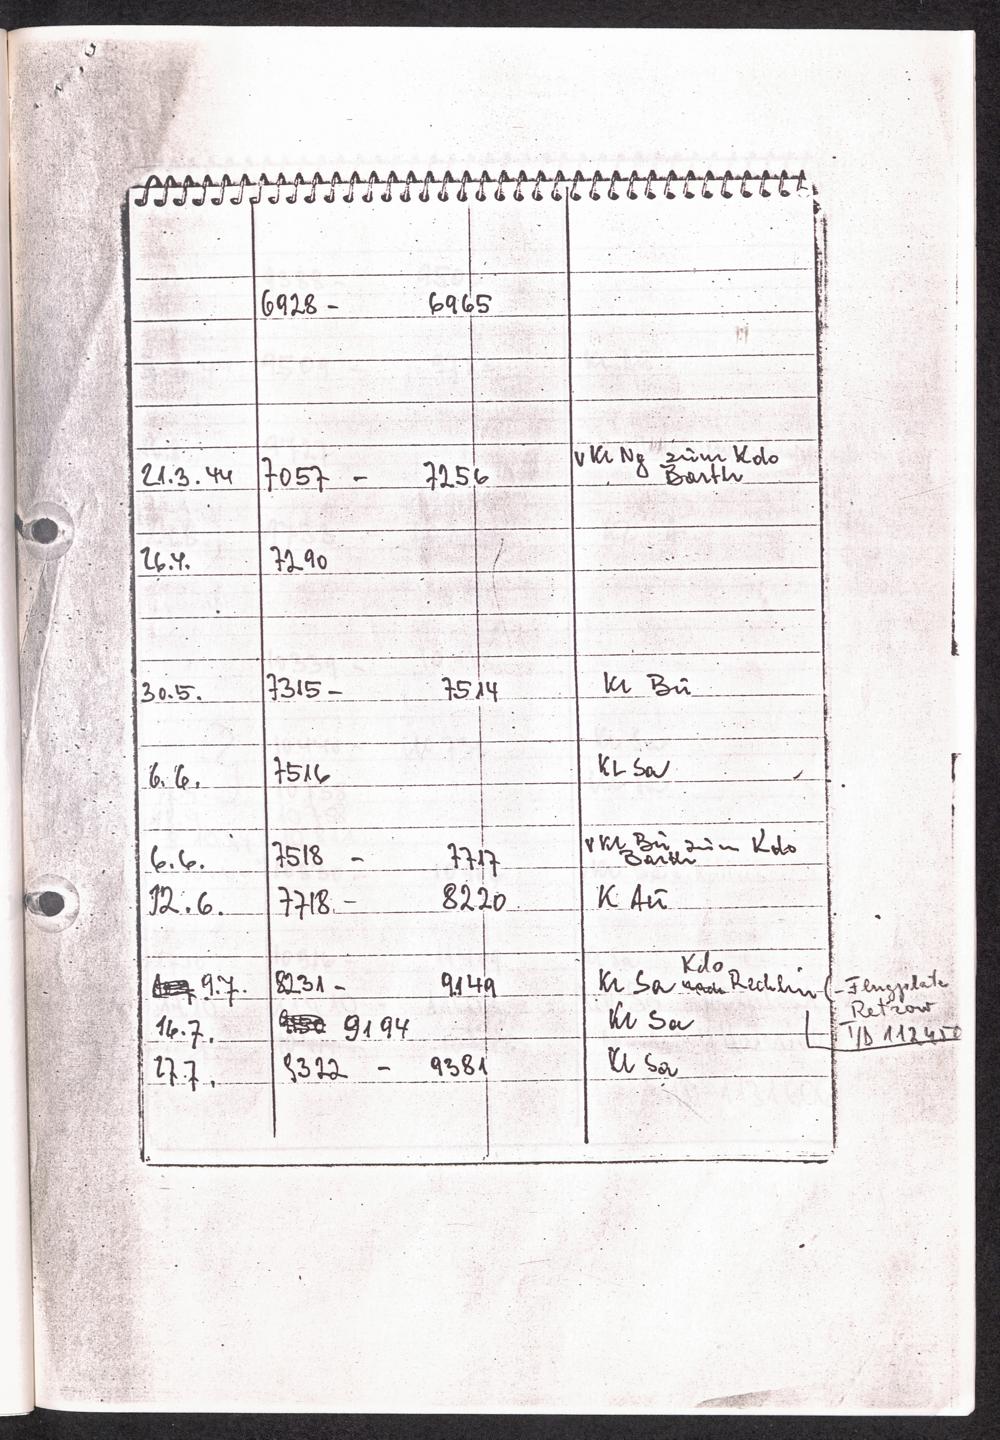 6928 - 6965
21.3.44 7057 - 7256 v Kl Ng zum Kdo
Barth
26.4. 7290
30.5. 7315 - 7514 Kl Bü
6.6. 7516 KL Sa
6.6. 7518 - 7717 v Kl Bü zum Kdo
Barth
12.6. 7718 - 8220 K Au
Kdo
9.7. 8231 - 9149 Kl Sa Rechlin (- Flugplatz
Retzow
14.7. 9194 Kl Sa T/D 112450
27.7. 9322 - 9381 Kl Sa